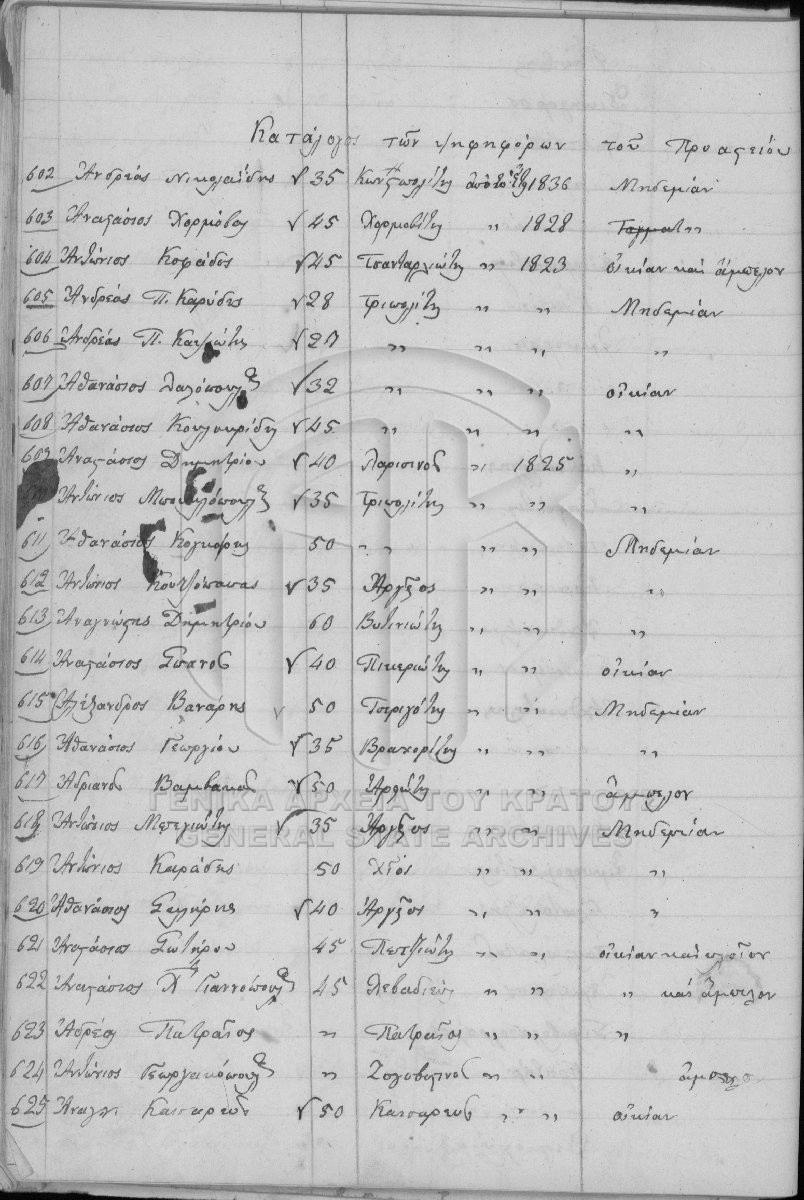 Κατάλογος τῶν ψηφηφόρων τοῦ Προαςείου
602 Ἀνδρέας Νικολαΐδης √ 35 Κων/πολίτης ἀπὸ τὸ ἔτ. 1836 Μηδεμίαν
603 Ἀναςάσιος Χορμόβας √ 45 Χορμοβίτης " 1828 "
604 Ἀντώνιος Κοφάδος √ 45 " 1823 οἰκίαν καὶ ἄμπελον
605 Ἀνδρέας Π. Καρύδης √ 28 Τριπολίτης " " Μηδεμίαν
606 Ἀνδρέας Π. √ 27 " " " "
607 Ἀθανάσιος √ 32 " " " οἰκίαν
608 Ἀθανάσιος Κουλουρίδης √ 45 " " " "
609 Ἀναςάσιος Δημητρίου √ 40 Λαρισινὸς " 1825 "
Ἀντώνιος √ 35 Τριπολίτης " " "
611 Ἀθανάσιος 50 " " " " Μηδεμίαν
612 Ἀντώνιος Κουτζόπαπας √ 35 Ἄργους " " "
613 Ἀναγνώςης Δημητρίου 60 Βυτινιώτης " " "
614 Ἀναςάσιος Σπανὸς √ 40 Πικεριώτης " " οἰκίαν
615 Ἀλέξανδρος Βανάρης √ 50 Τσεριγότης " " Μηδεμίαν
616 Ἀθανάσιος Γεωργίου √ 35 Βραχορίτης " " "
617 Ἀδριανὸς Βαμβακὰς √ 50 " " ἄμπελον
618 Ἀντώνιος √ 35 Ἄργους " " Μηδεμίαν
619 Ἀντώνιος Καράδης 50 Χῖος " " "
620 Ἀθανάσιος √ 40 Ἄργους " " "
621 Ἀναςάσιος Σωτήρου 45 " " οἰκίαν καὶ πλοῖον
622 Ἀναςάσιος Χ Γιαννόπουλος 45 Λεβαδιεὺς " " " καὶ ἄμπελον
623 Ἀδρέας Πατραῖος " Πατραῖος " " "
624 Ἀντώνιος Γεωργακόπουλος " " " ἄμπελο
625 Ἀναγν Καισαρεὺς √ 50 Καισαρεὺς " " οἰκίαν
ΓΕΝΙΚΑ ΑΡΧΕΙΑ ΤΟΥ ΚΡΑΤΟΥΣ
GENERAL STATE ARCHIVES